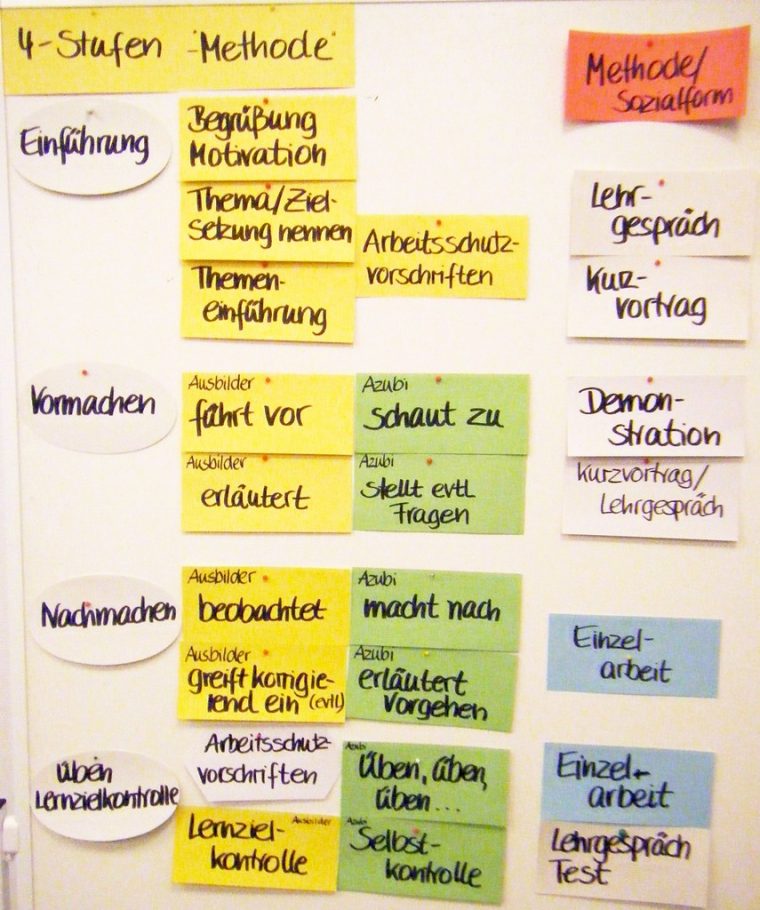 4-Stufen -Methode
Methode/
Sozialform
Einführung
Begrüßung
Motivation
Thema/Ziel-
setzung nennen
Arbeitsschutz-
vorschriften
Themen-
einführung
Lehr-
gespräch
Kurz-
vortrag
Vormachen
Ausbilder
führt vor
Azubi
schaut zu
Demon-
stration
Ausbilder
erläutert
Azubi
stellt evtl.
Fragen
Kurzvortrag/
Lehrgespräch
Nachmachen
Ausbilder
beobachtet
Azubi
macht nach
Einzel-
arbeit
Ausbilder
greift korrigie-
rend ein (evtl)
Azubi
erläutert
Vorgehen
Üben
Lernzielkontrolle
Arbeitsschutz-
vorschriften
Azubi
Üben, üben,
üben...
Einzel-
arbeit
Ausbilder
Lernziel-
kontrolle
Azubi
Selbst-
kontrolle
Lehrgespräch
Test